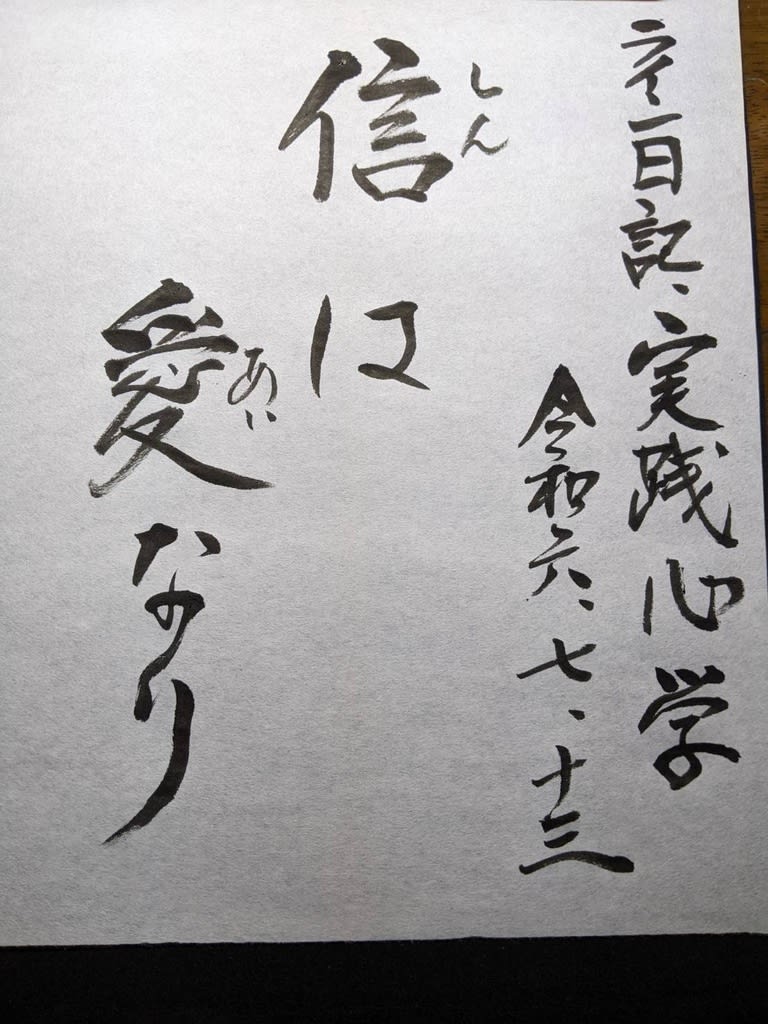 一日記、実践心学
令和六、七、十三
しん
信は
あい
愛なり